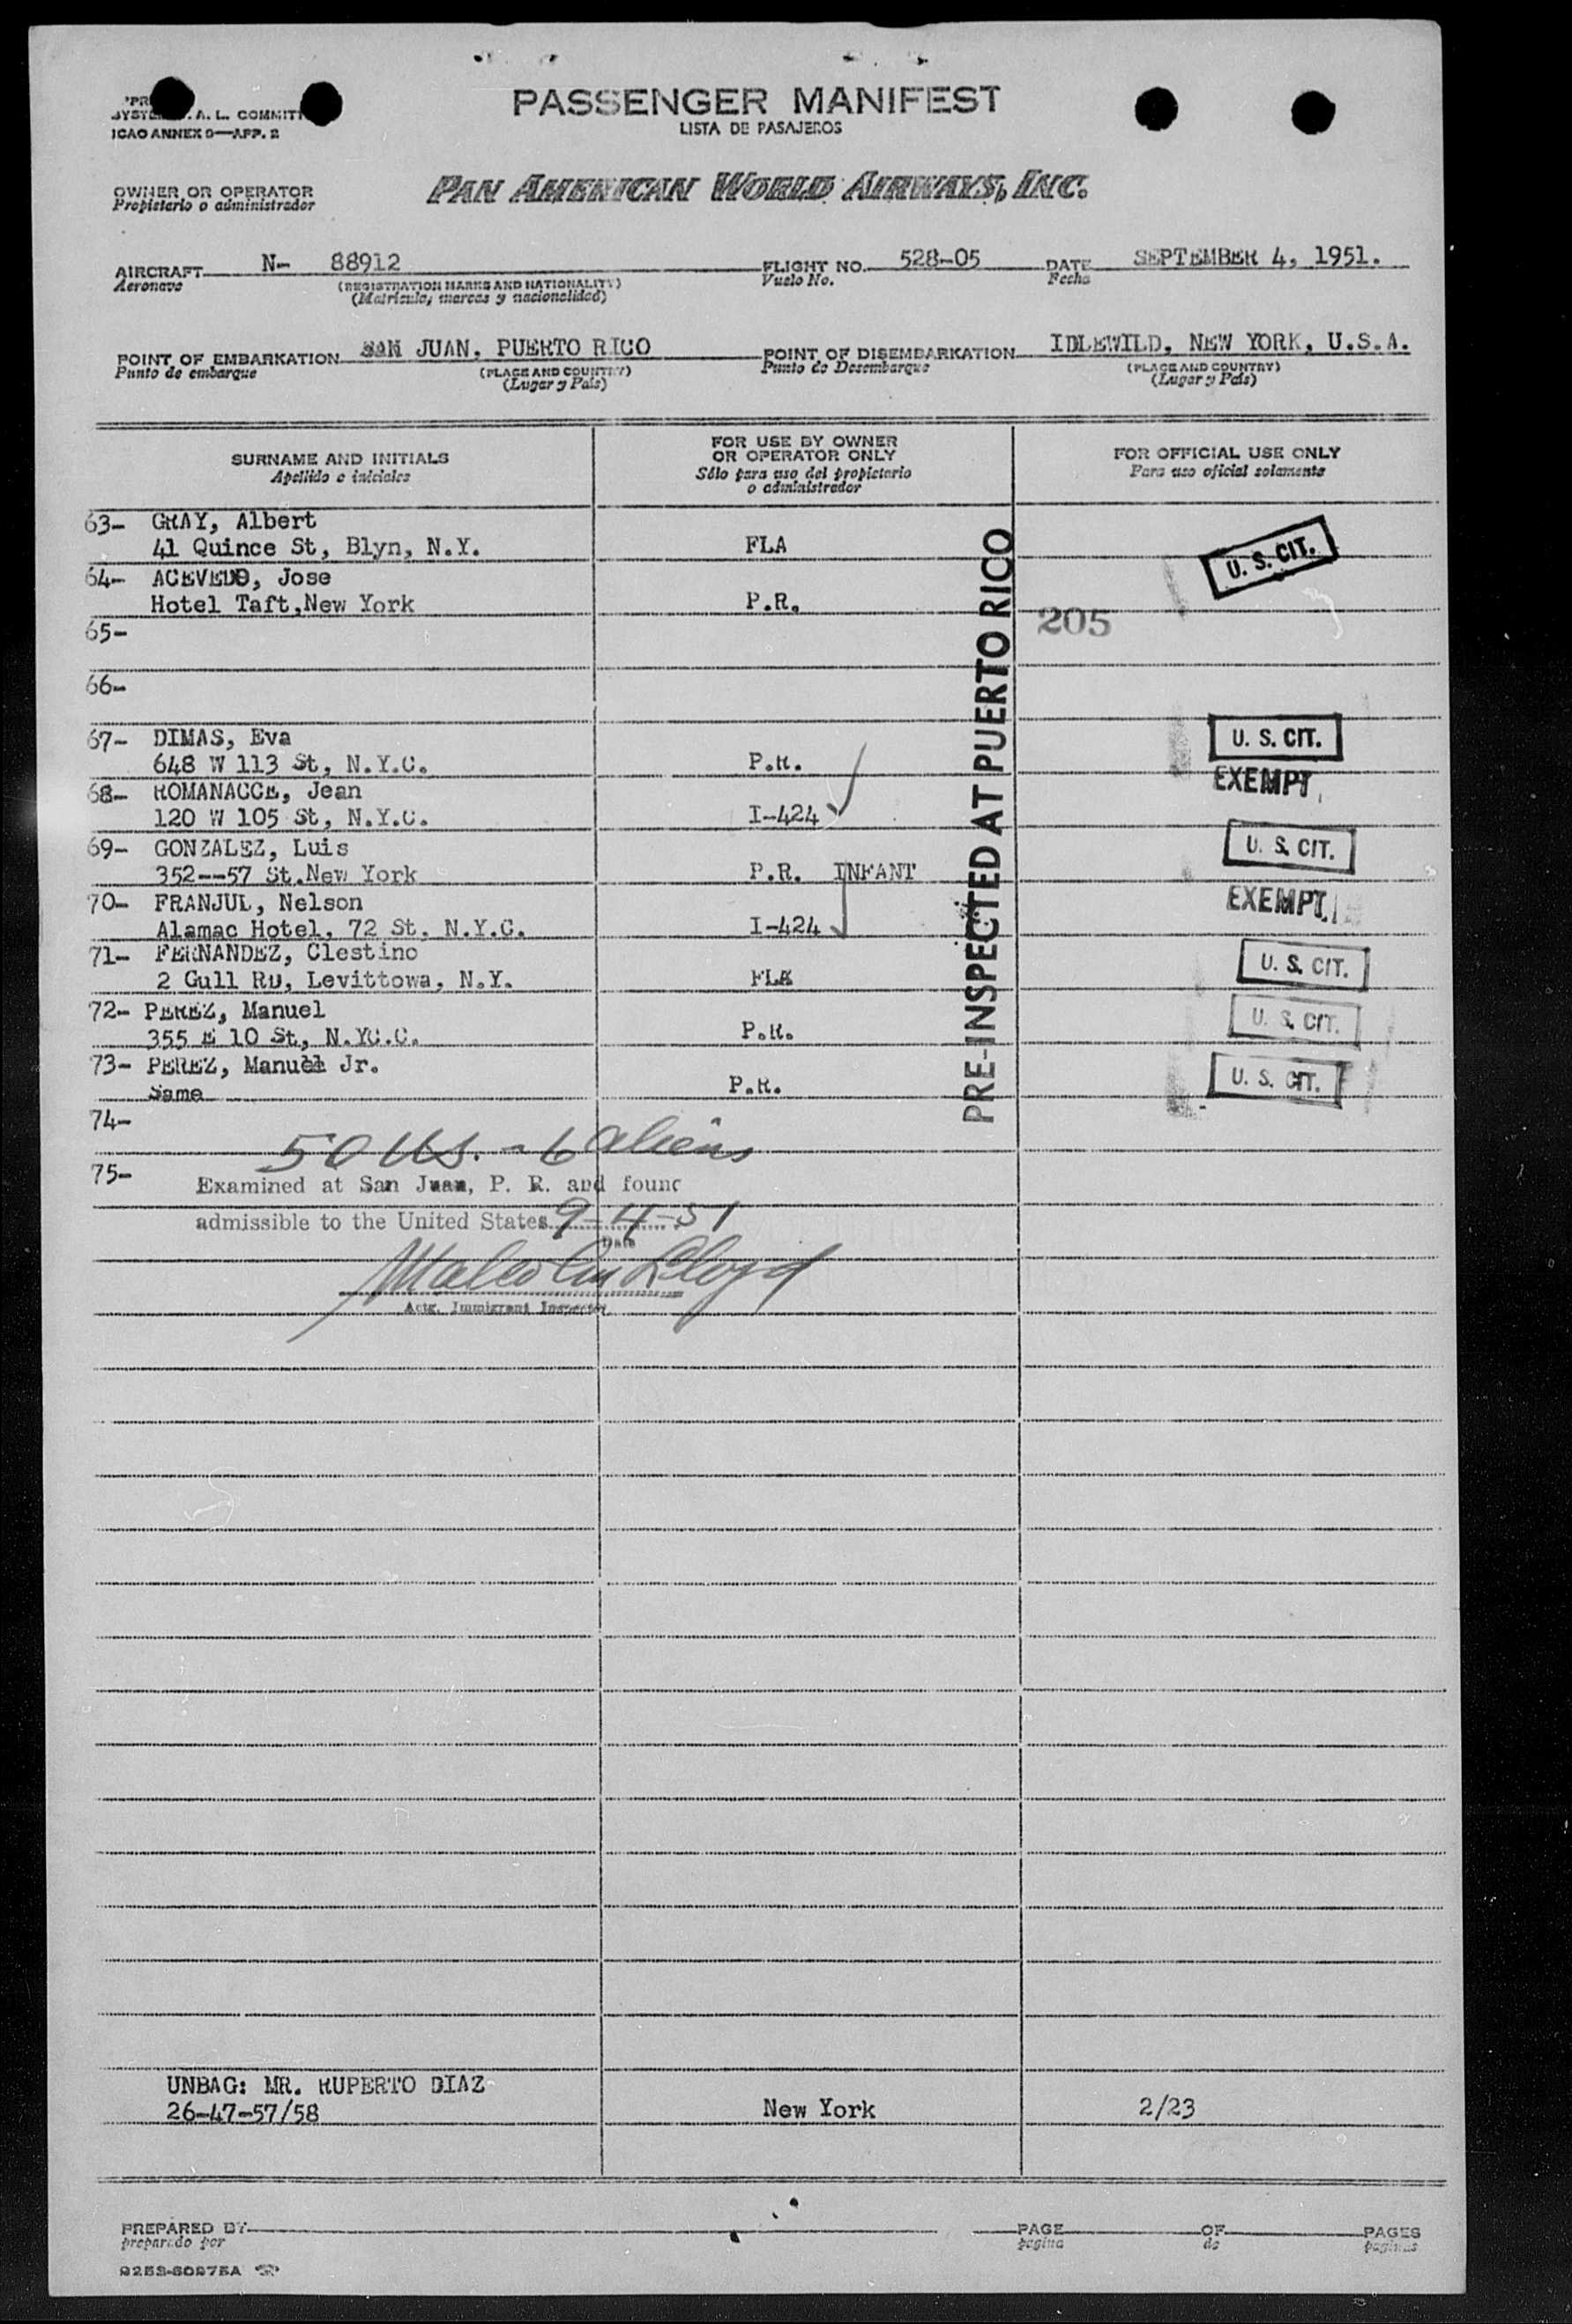 PASSENGER MANIFEST
LISTA DE PASAJEROS
A. L. COMMITT
ICAO ANNEX 9—APP. 2
OWNER OR OPERATOR
Propietario o administrador
PAN AMERICAN WORLD AIRWAYS, INC.
AIRCRAFT N- 88912 FLIGHT NO. 528-05 DATE SEPTEMBER 4, 1951.
Aeronave (REGISTRATION MARKS AND NATIONALITY) Vuelo No. Fecha
(Matricula, marcas y nacionalidad)
POINT OF EMBARKATION SAN JUAN, PUERTO RICO POINT OF DISEMBARKATION IDLEWILD, NEW YORK, U.S.A.
Punto de embarque (PLACE AND COUNTRY) Punto de Desembarque (PLACE AND COUNTRY)
(Lugar y País) (Lugar y País)
SURNAME AND INITIALS
Apellido e iniciales
FOR USE BY OWNER
OR OPERATOR ONLY
Sólo para uso del propietario
o administrador
FOR OFFICIAL USE ONLY
Para uso oficial solamente
63- GRAY, Albert
41 Quince St, Blyn, N.Y. FLA U. S. CIT.
64- ACEVEDO, Jose
Hotel Taft,New York P.R.
65- 205
66-
67- DIMAS, Eva U. S. CIT.
648 W 113 St, N.Y.C. P.R.
68- ROMANACCE, Jean EXEMPT
120 W 105 St, N.Y.C. I-424
69- GONZALEZ, Luis U. S. CIT.
352--57 St.New York P.R. INFANT
70- FRANJUL, Nelson EXEMPT
Alamac Hotel, 72 St, N.Y.C. I-424
71- FERNANDEZ, Clestino U. S. CIT.
2 Gull RD, Levittowa, N.Y. FLA
72- PEREZ, Manuel U. S. CIT.
355 E 10 St, N.YC.C. P.R.
73- PEREZ, Manuel Jr. U. S. CIT.
Same P.R.
PRE-INSPECTED AT PUERTO RICO
74-
50 US. - 6 aliens
75-
Examined at San Juan, P. R. and found
admissible to the United States 9-4-51
Date
Malcolm Lloyd
Actg. Immigrant Inspector
UNBAG: MR. RUPERTO DIAZ
26-47-57/58 New York 2/23
PREPARED BY PAGE OF PAGES
preparado por pagina de paginas
9253-60975A